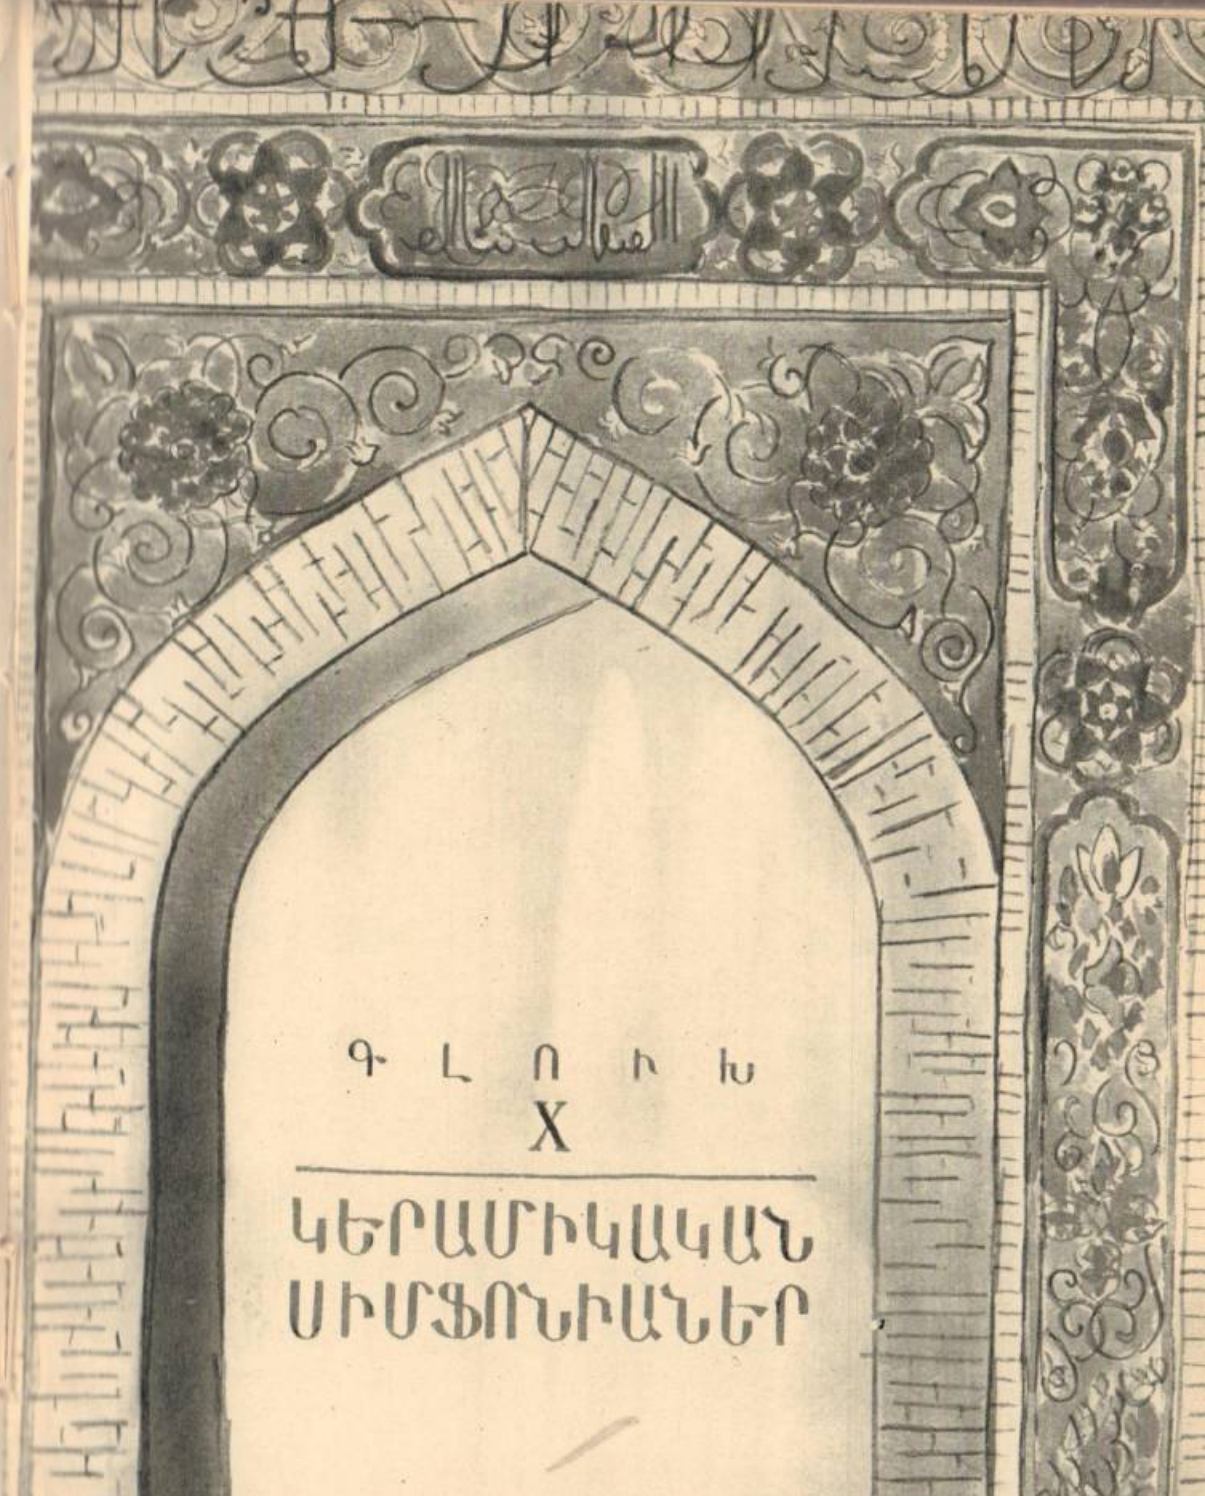 ԳԼՈՒԽ
X
ԿԵՐԱՄԻԿԱԿԱՆ
ՍԻՄՖՈՆԻԱՆԵՐ